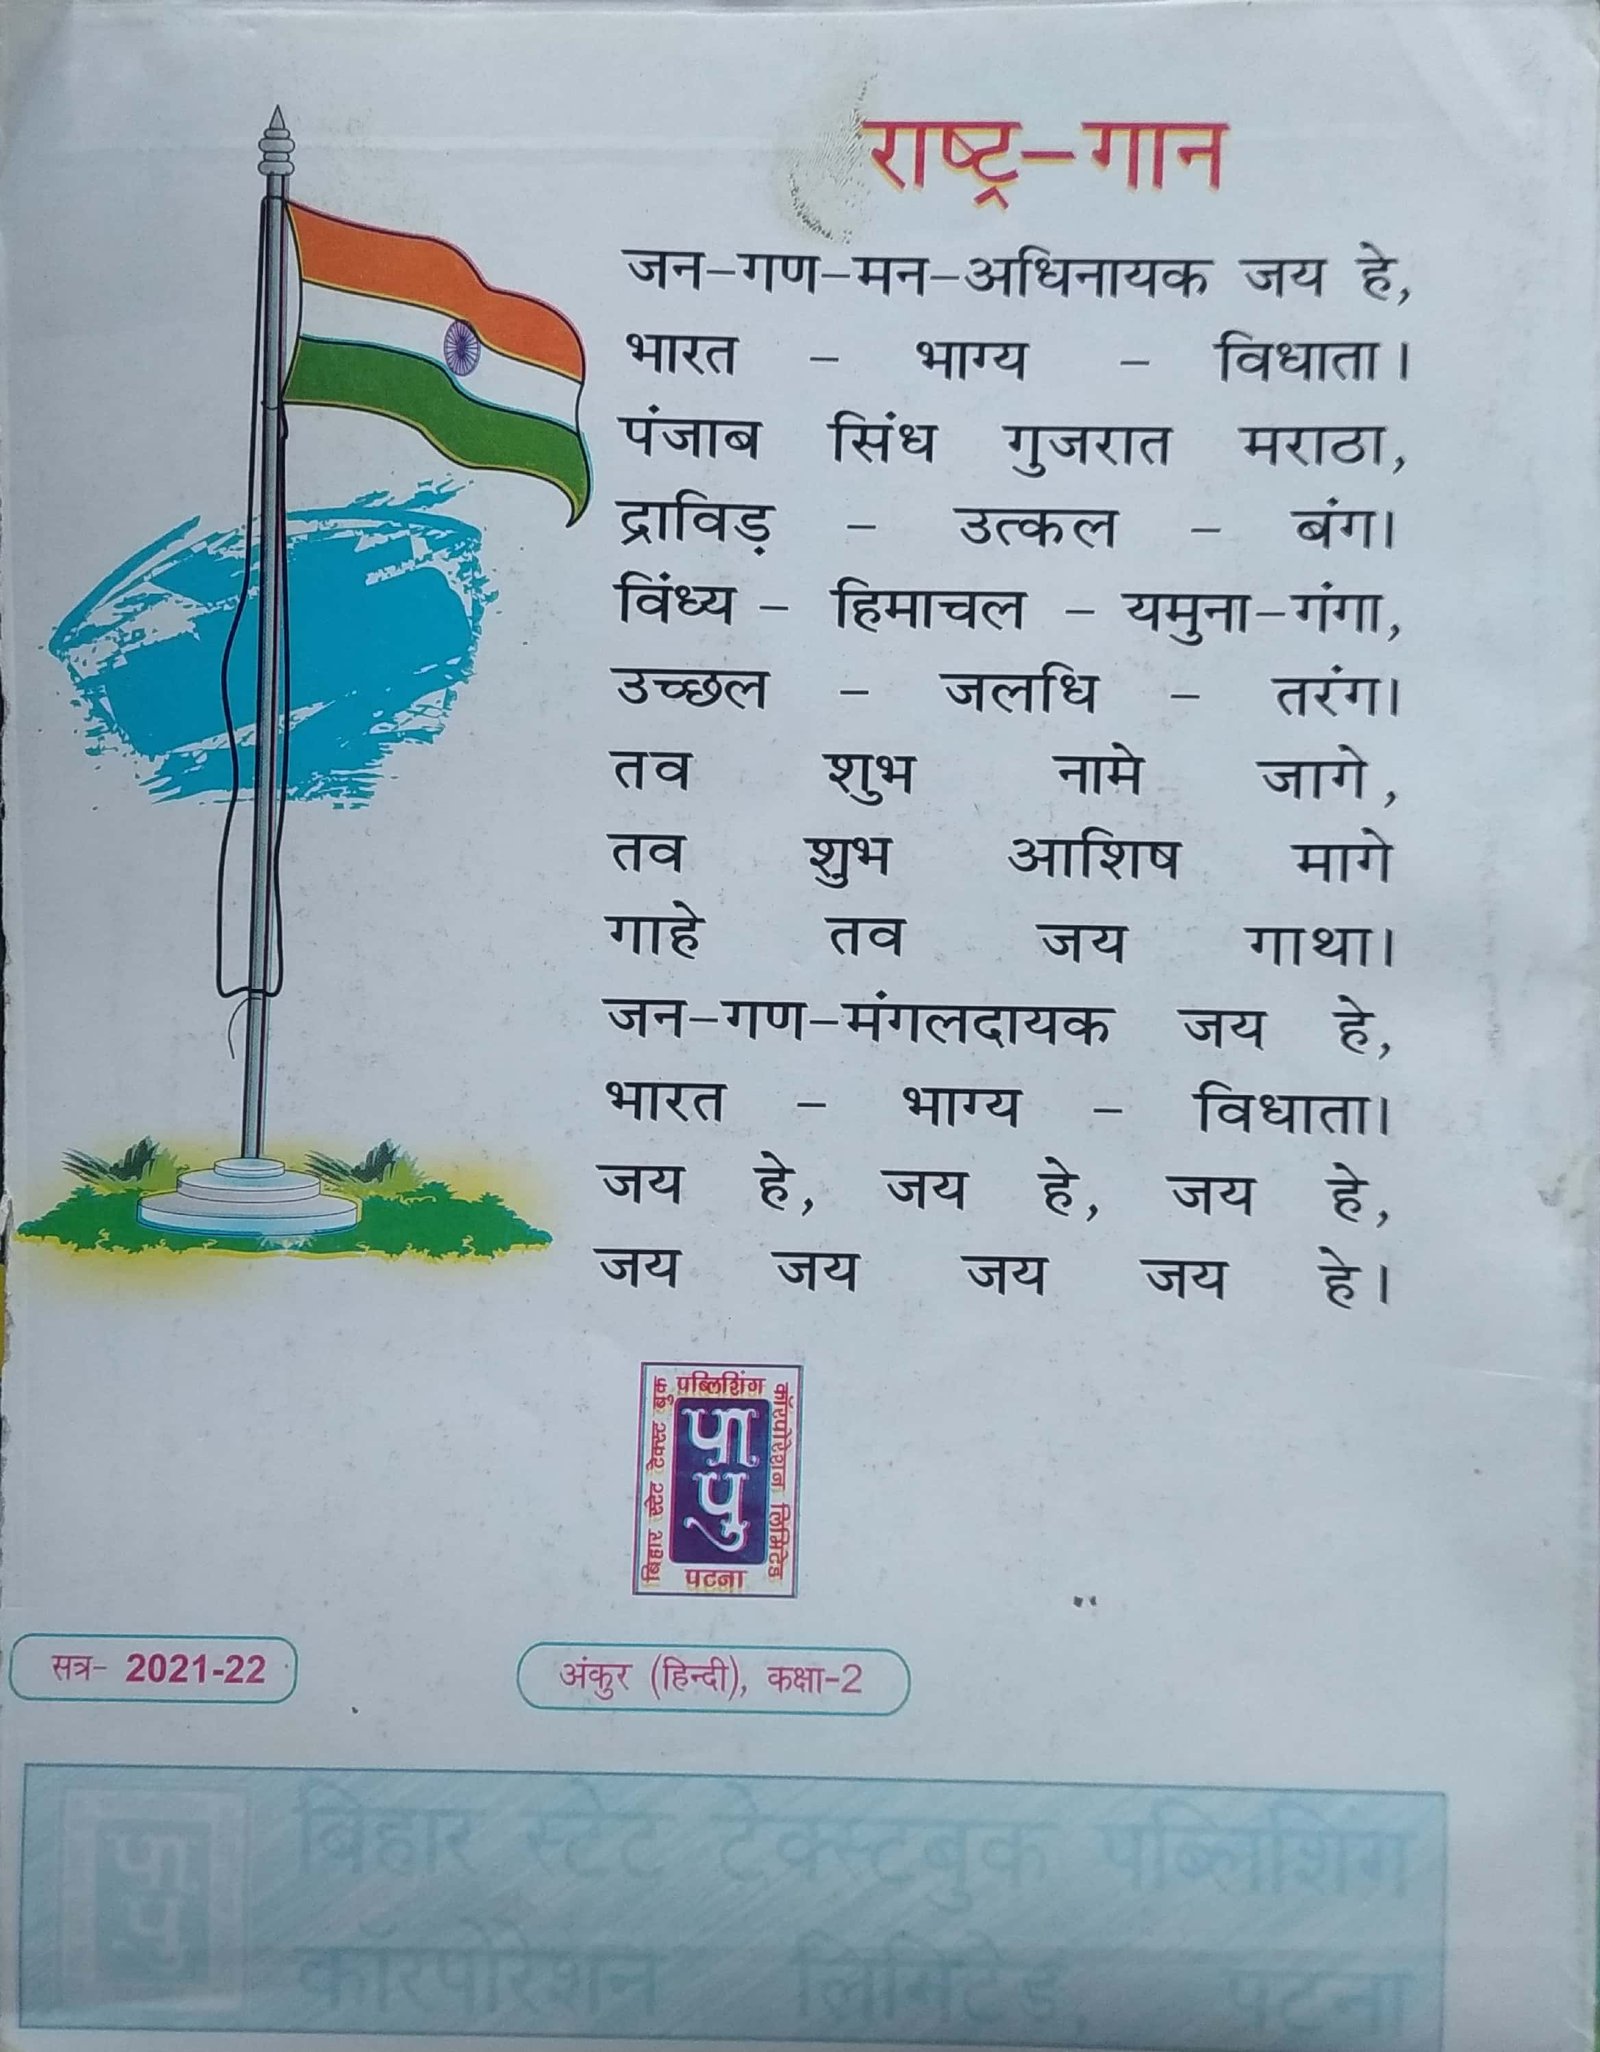 राष्ट्र-गान
जन-गण-मन-अधिनायक जय हे,
भारत - भाग्य - विधाता।
पंजाब सिंध गुजरात मराठा,
द्राविड़ - उत्कल - बंग।
विंध्य - हिमाचल - यमुना-गंगा,
उच्छल - जलधि - तरंग।
तव शुभ नामे जागे,
तव शुभ आशिष मागे
गाहे तव जय गाथा।
जन-गण-मंगलदायक जय हे,
भारत - भाग्य - विधाता।
जय हे, जय हे, जय हे,
जय जय जय जय हे।
बिहार स्टेट टेक्स्ट बुक
पब्लिशिंग
कॉरपोरेशन लिमिटेड
पा
पु
पटना
सत्र- 2021-22
अंकुर (हिन्दी), कक्षा-2
पा
पु
बिहार स्टेट टेक्स्टबुक पब्लिशिंग
कॉरपोरेशन लिमिटेड, पटना